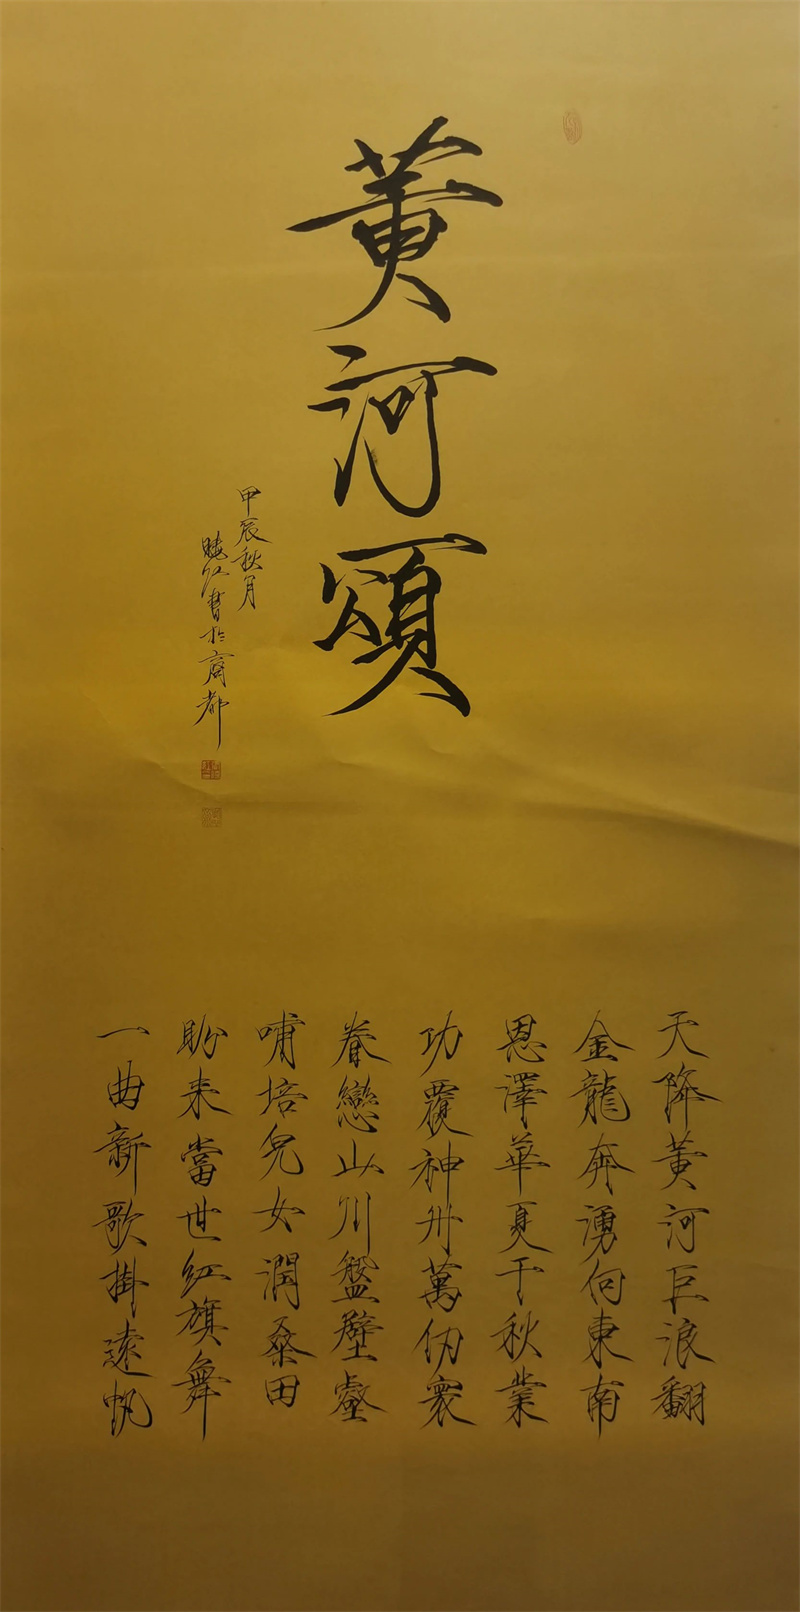 黄河頌
甲辰秋月
曉紅書於商都
天降黄河巨浪翻
金龍奔湧向東南
恩澤華夏千秋業
功覆神州萬仞寰
眷戀山川盤壁壑
哺培兒女潤桑田
盼来當世紅旗舞
一曲新歌掛遠帆